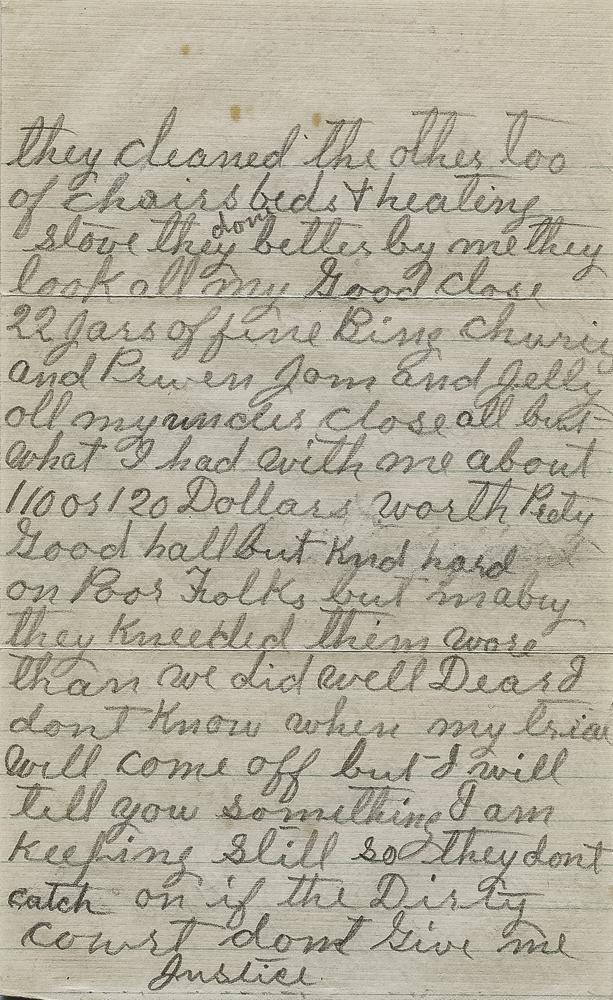 they cleaned the other too
of chairs beds + heating
stove they done better by me they
took all my Good close
22 Jars of fine Bing churry
and Pruen Jam and Jelly
all my under close all but
what I had with me about
110 or 120 Dollars worth Prety
Good hall but Knd hard
on Poor Folks but mabey
they Kneeded them worse
than we did well Dear I
dont Know when my trial
will come off but I will
tell you something I am
Keeping Still so they dont
catch on if the Dirty
court dont Give me
Justice